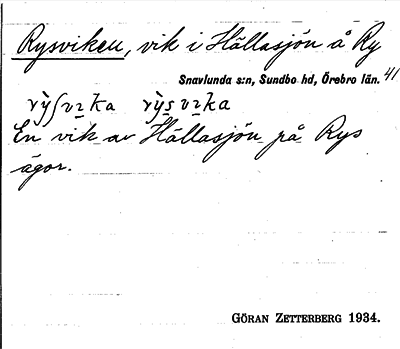 Rysviken, vik i Hällasjön å Ry
Snavlunda s:n, Sundbo hd, Örebro län. 41
En vik av Hällasjön på Rys
ägor.
GÖRAN ZETTERBERG 1934.